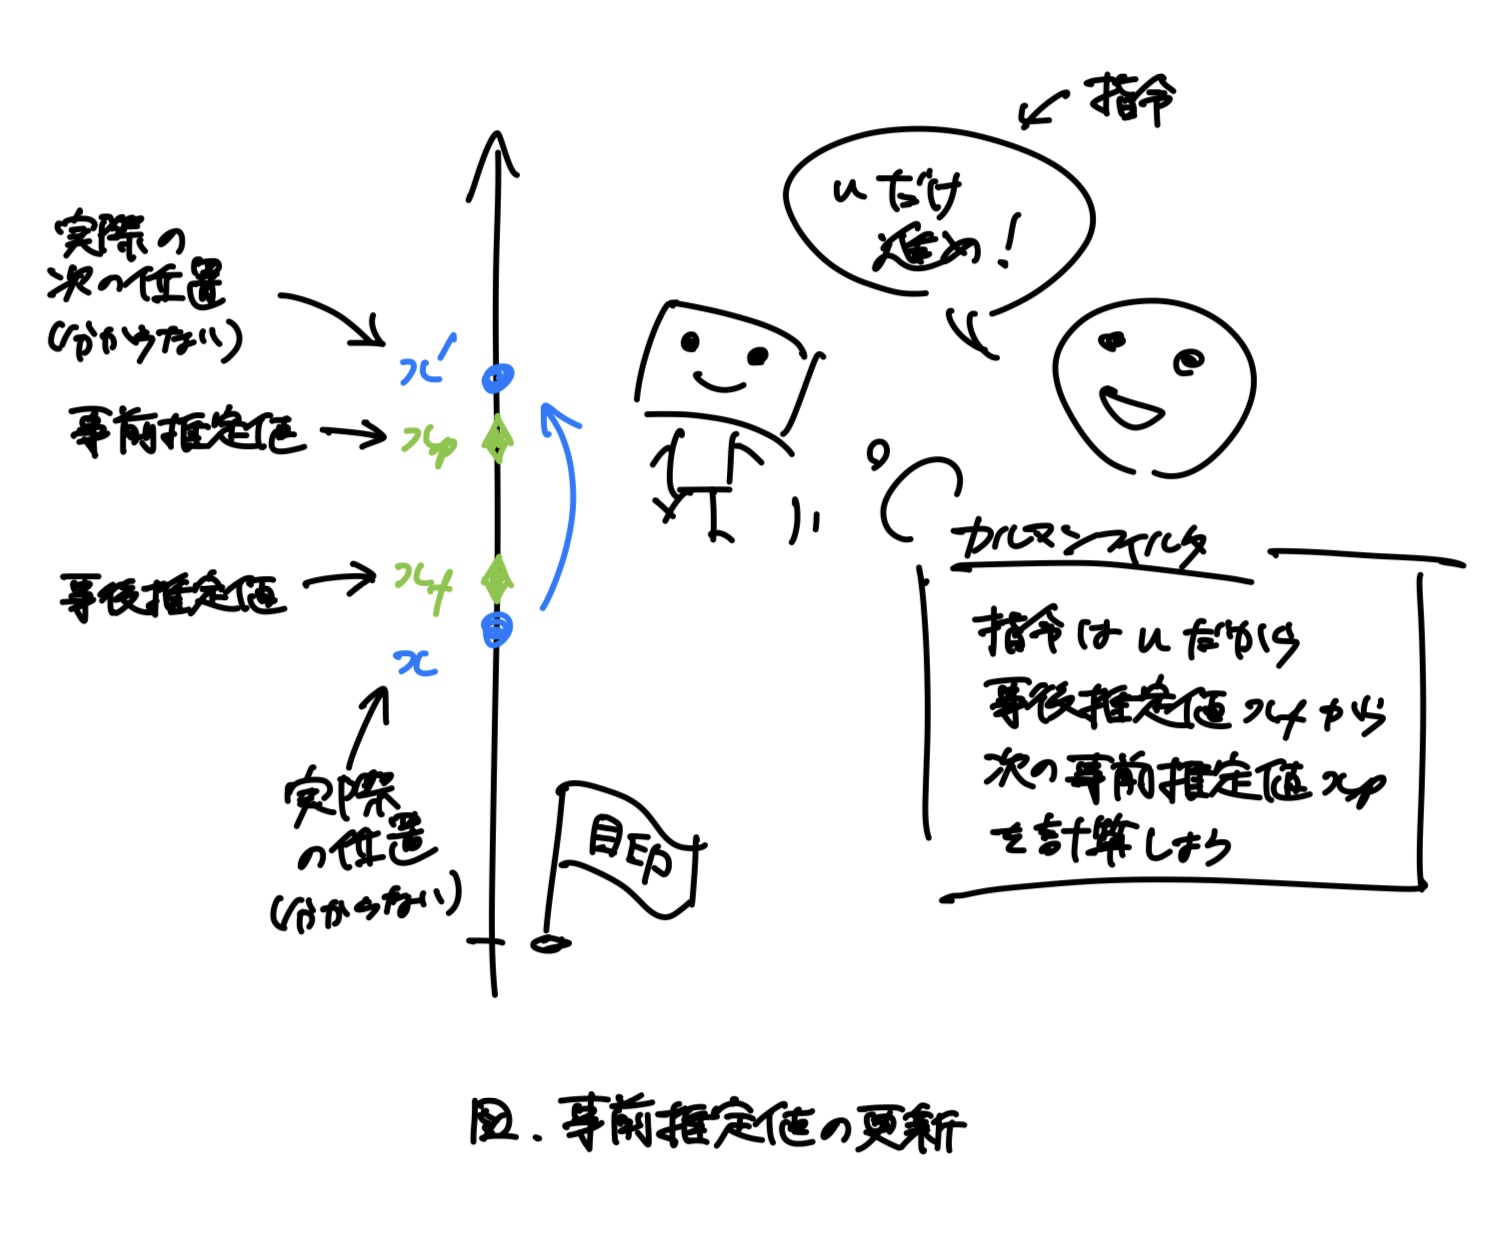 指令
uだけ
進め！
実際の
次の位置
(分からない)
x′
事前推定値
xp
事後推定値
xf
x
実際
の位置
(分からない)
目印
カルマンフィルタ
指令はuだから
事後推定値xfから
次の事前推定値xp
を計算しよう
図. 事前推定値の更新